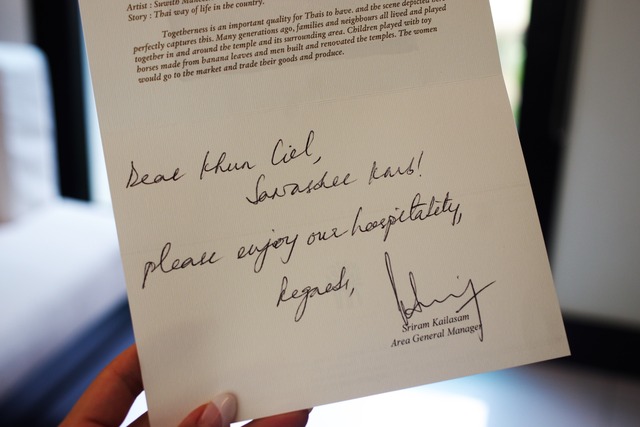 Artist : Suwith
Story : Thai way of life in the country.
Togetherness is an important quality for Thais to have. and the scene depicted
perfectly captures this. Many generations ago, families and neighbours all lived and played
together in and around the temple and its surrounding area. Children played with toy
horses made from banana leaves and men built and renovated the temples. The women
would go to the market and trade their goods and produce.
Dear Khun Ciel,
Sawasdee Karb!
please enjoy our hospitality,
Regards,
Sriram Kailasam
Area General Manager